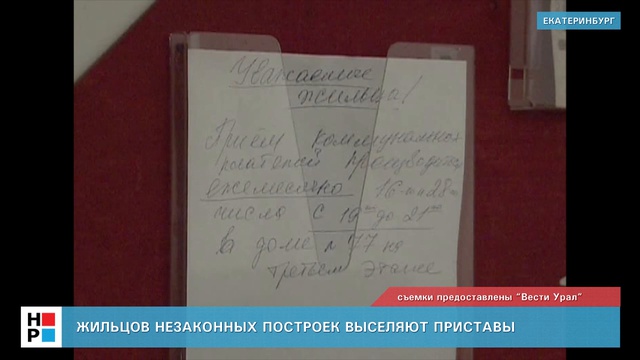 ЕКАТЕРИНБУРГ
Уважаемые
жильцы!
Приём коммунальных
платежей производится
ежемесячно 16-го и 28-го
число с 19⁰⁰ до 21⁰⁰
в доме 77 на
третьем этаже
съемки предоставлены "Вести Урал"
НР
ЖИЛЬЦОВ НЕЗАКОННЫХ ПОСТРОЕК ВЫСЕЛЯЮТ ПРИСТАВЫ